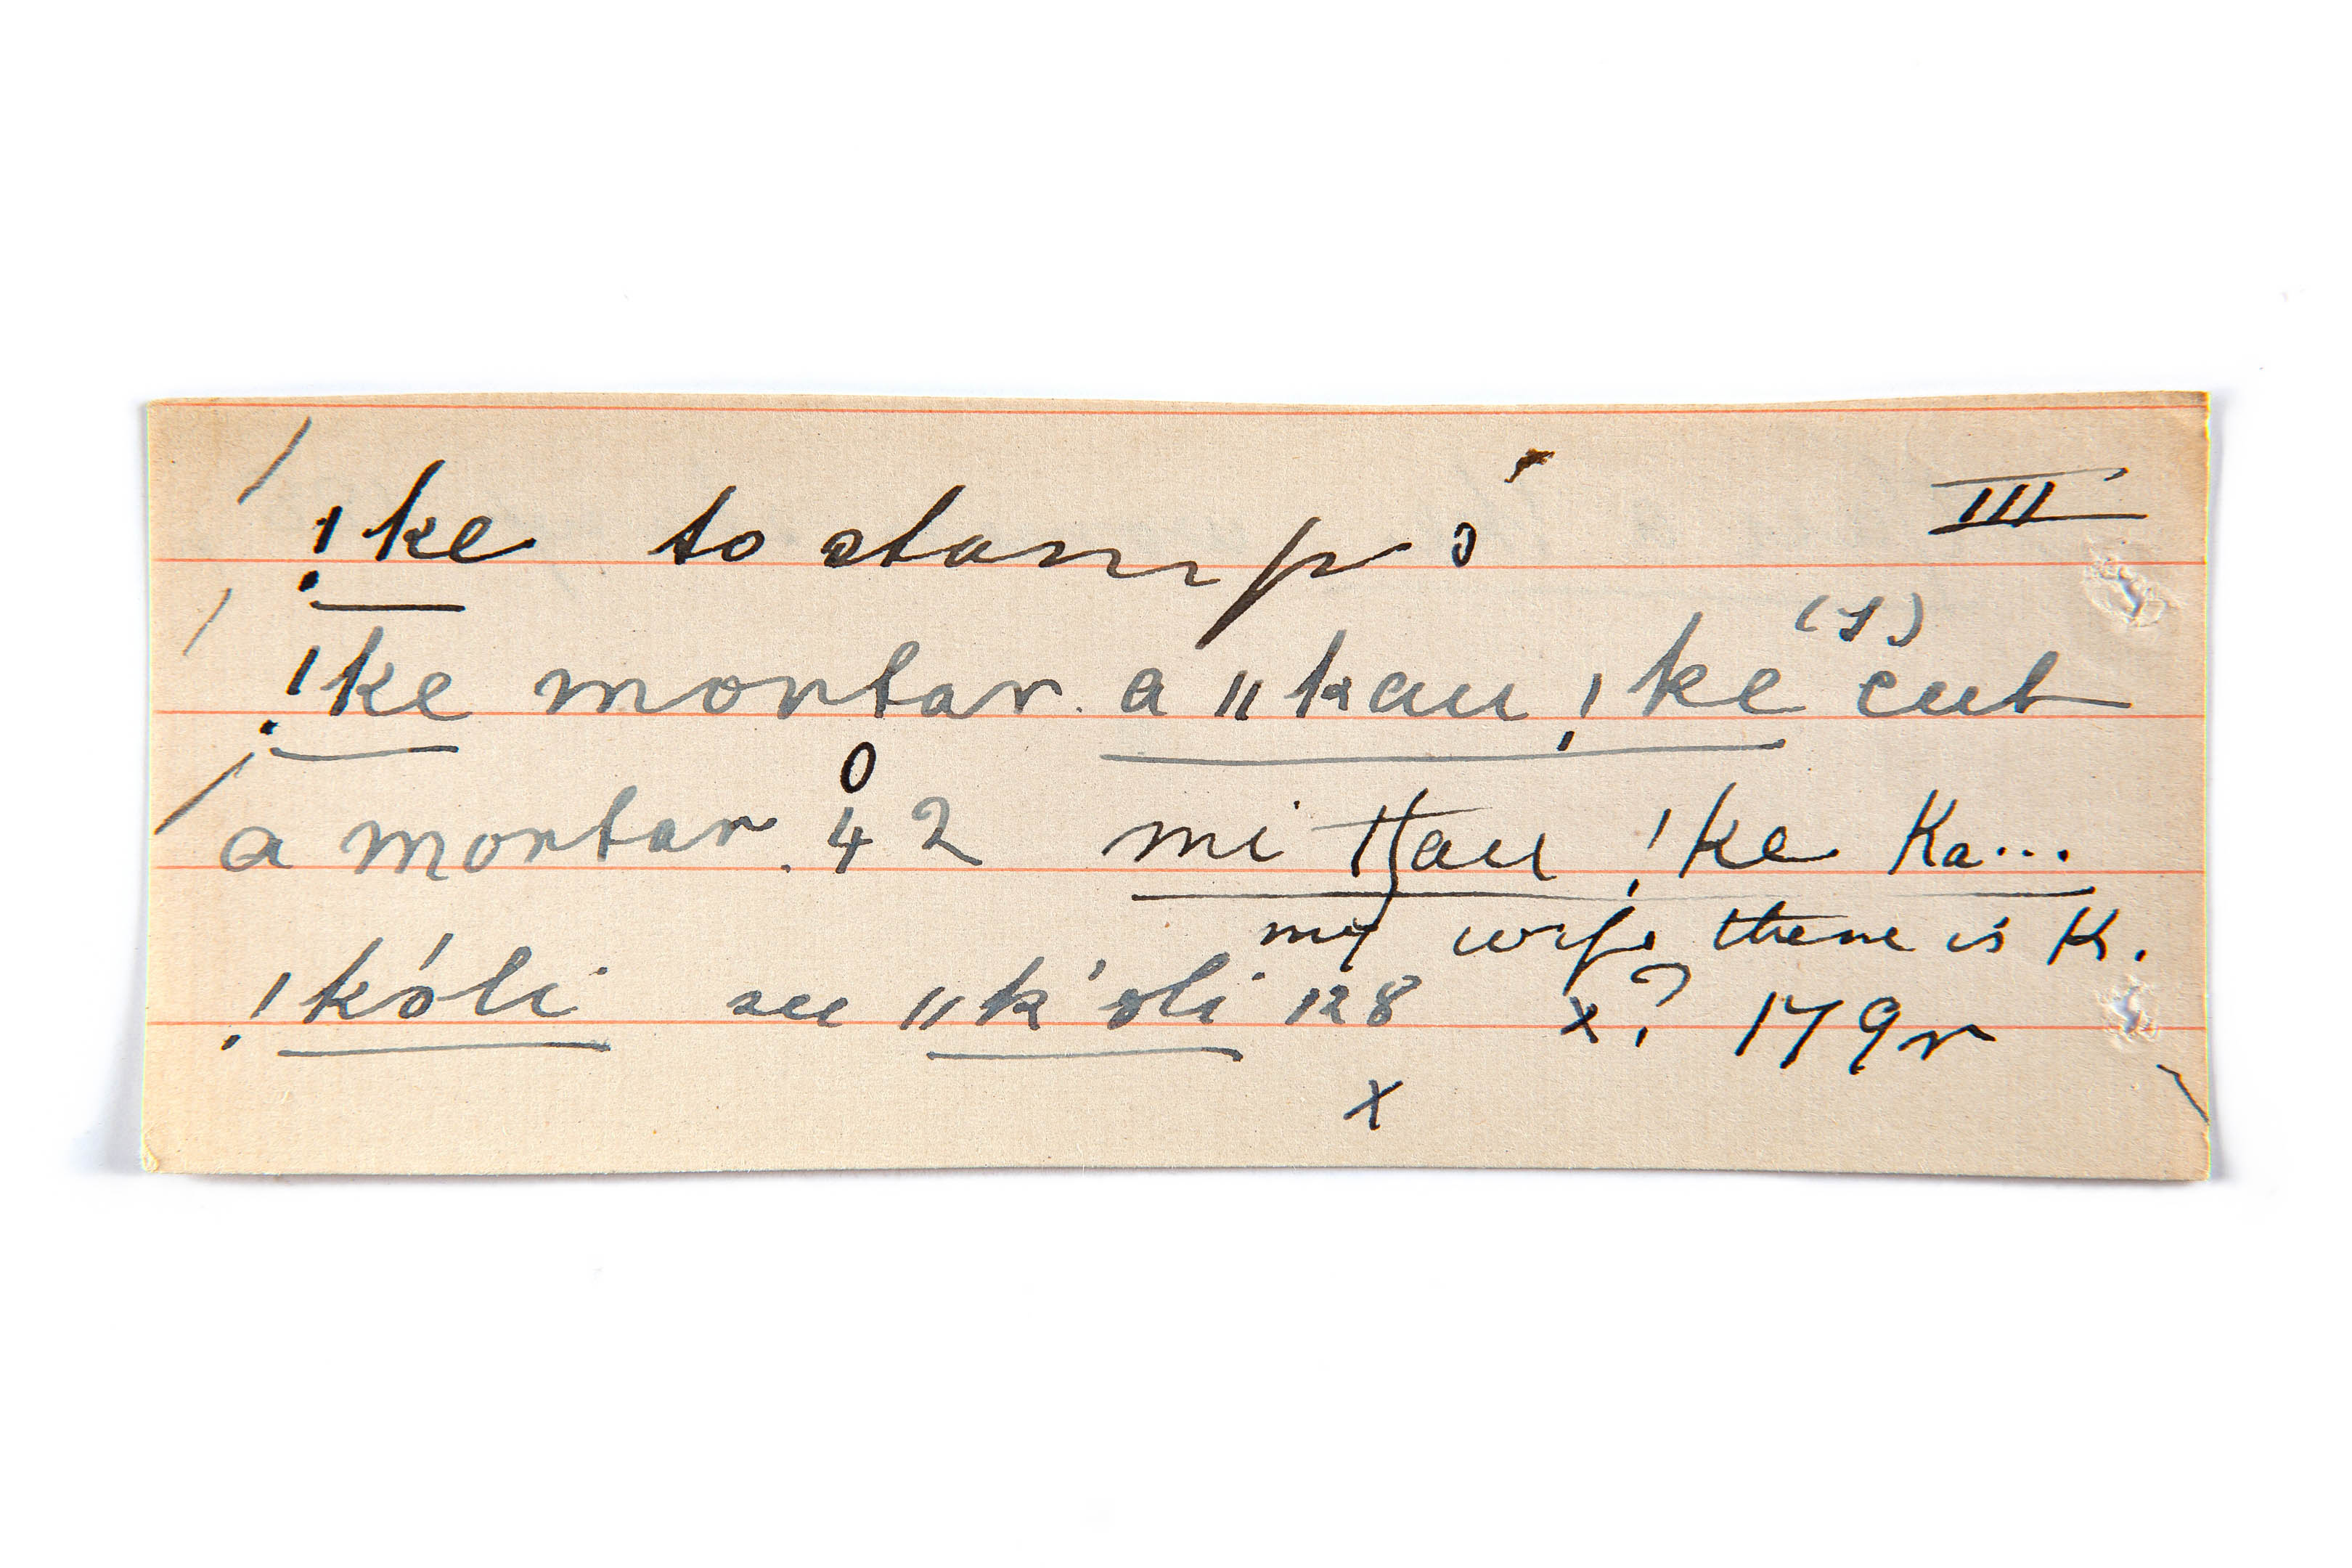 !ke to stamp o III
!ke mortar. a ǁkau !ke (1) cut
a mortar. 42 o mi tʃau !ke Ka...
my wife there is K.
!kóli see ǁk'oli 128 x? 179r
x